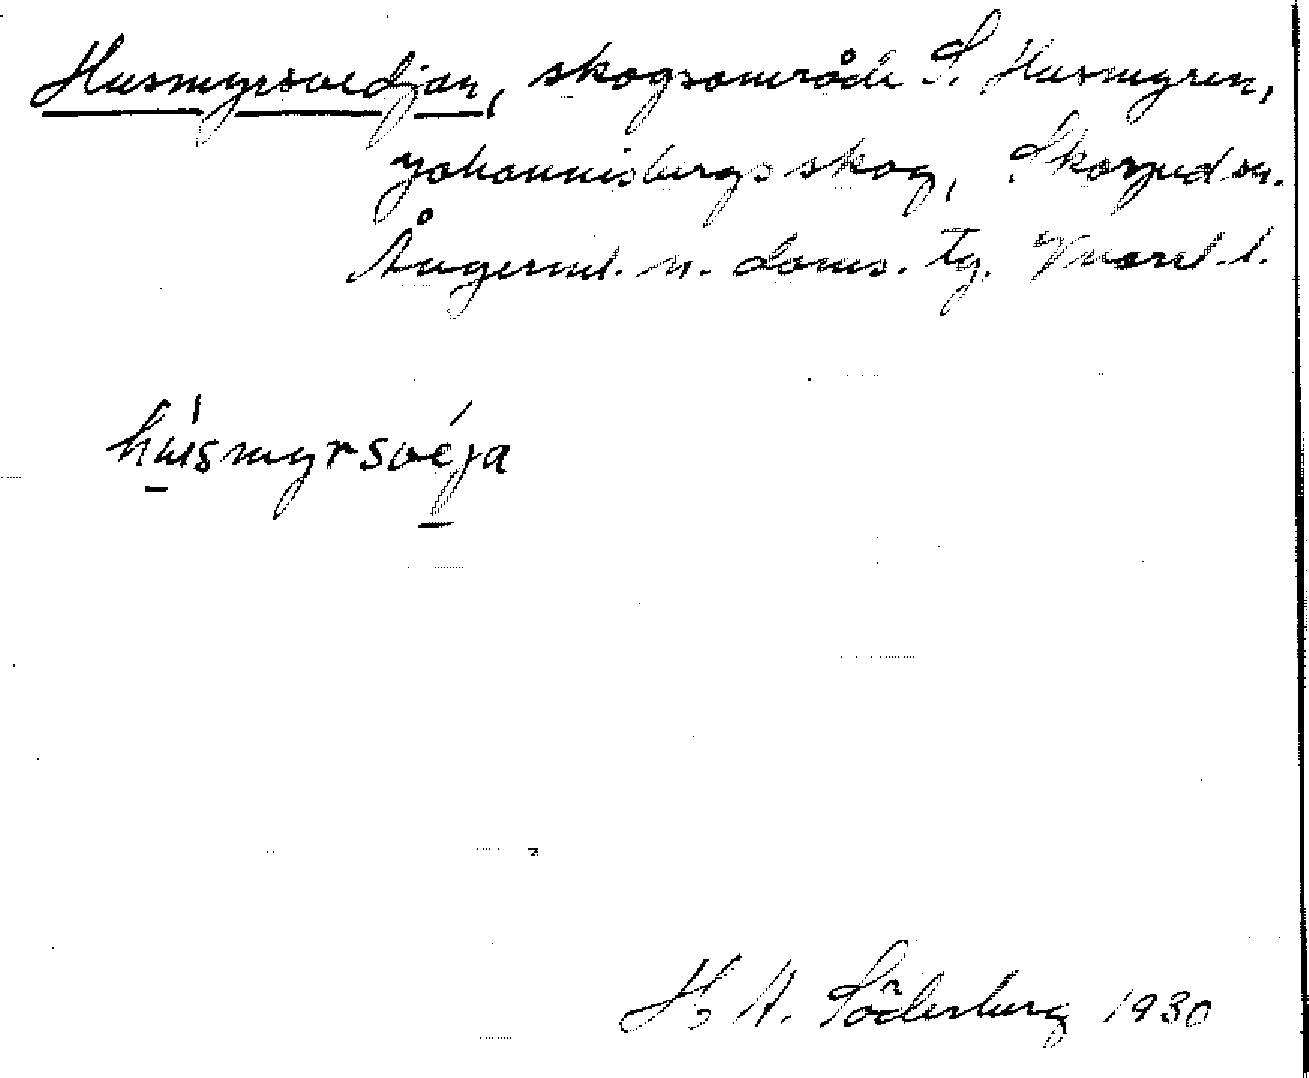 Husmyrsvedjan, skogsområde S. Husmyren,
Johannisbergs skog, Skorped sn.
Ångerml. n. doms. tg. Väst. l.
húsmyrsvéja
H. A. Söderberg 1930